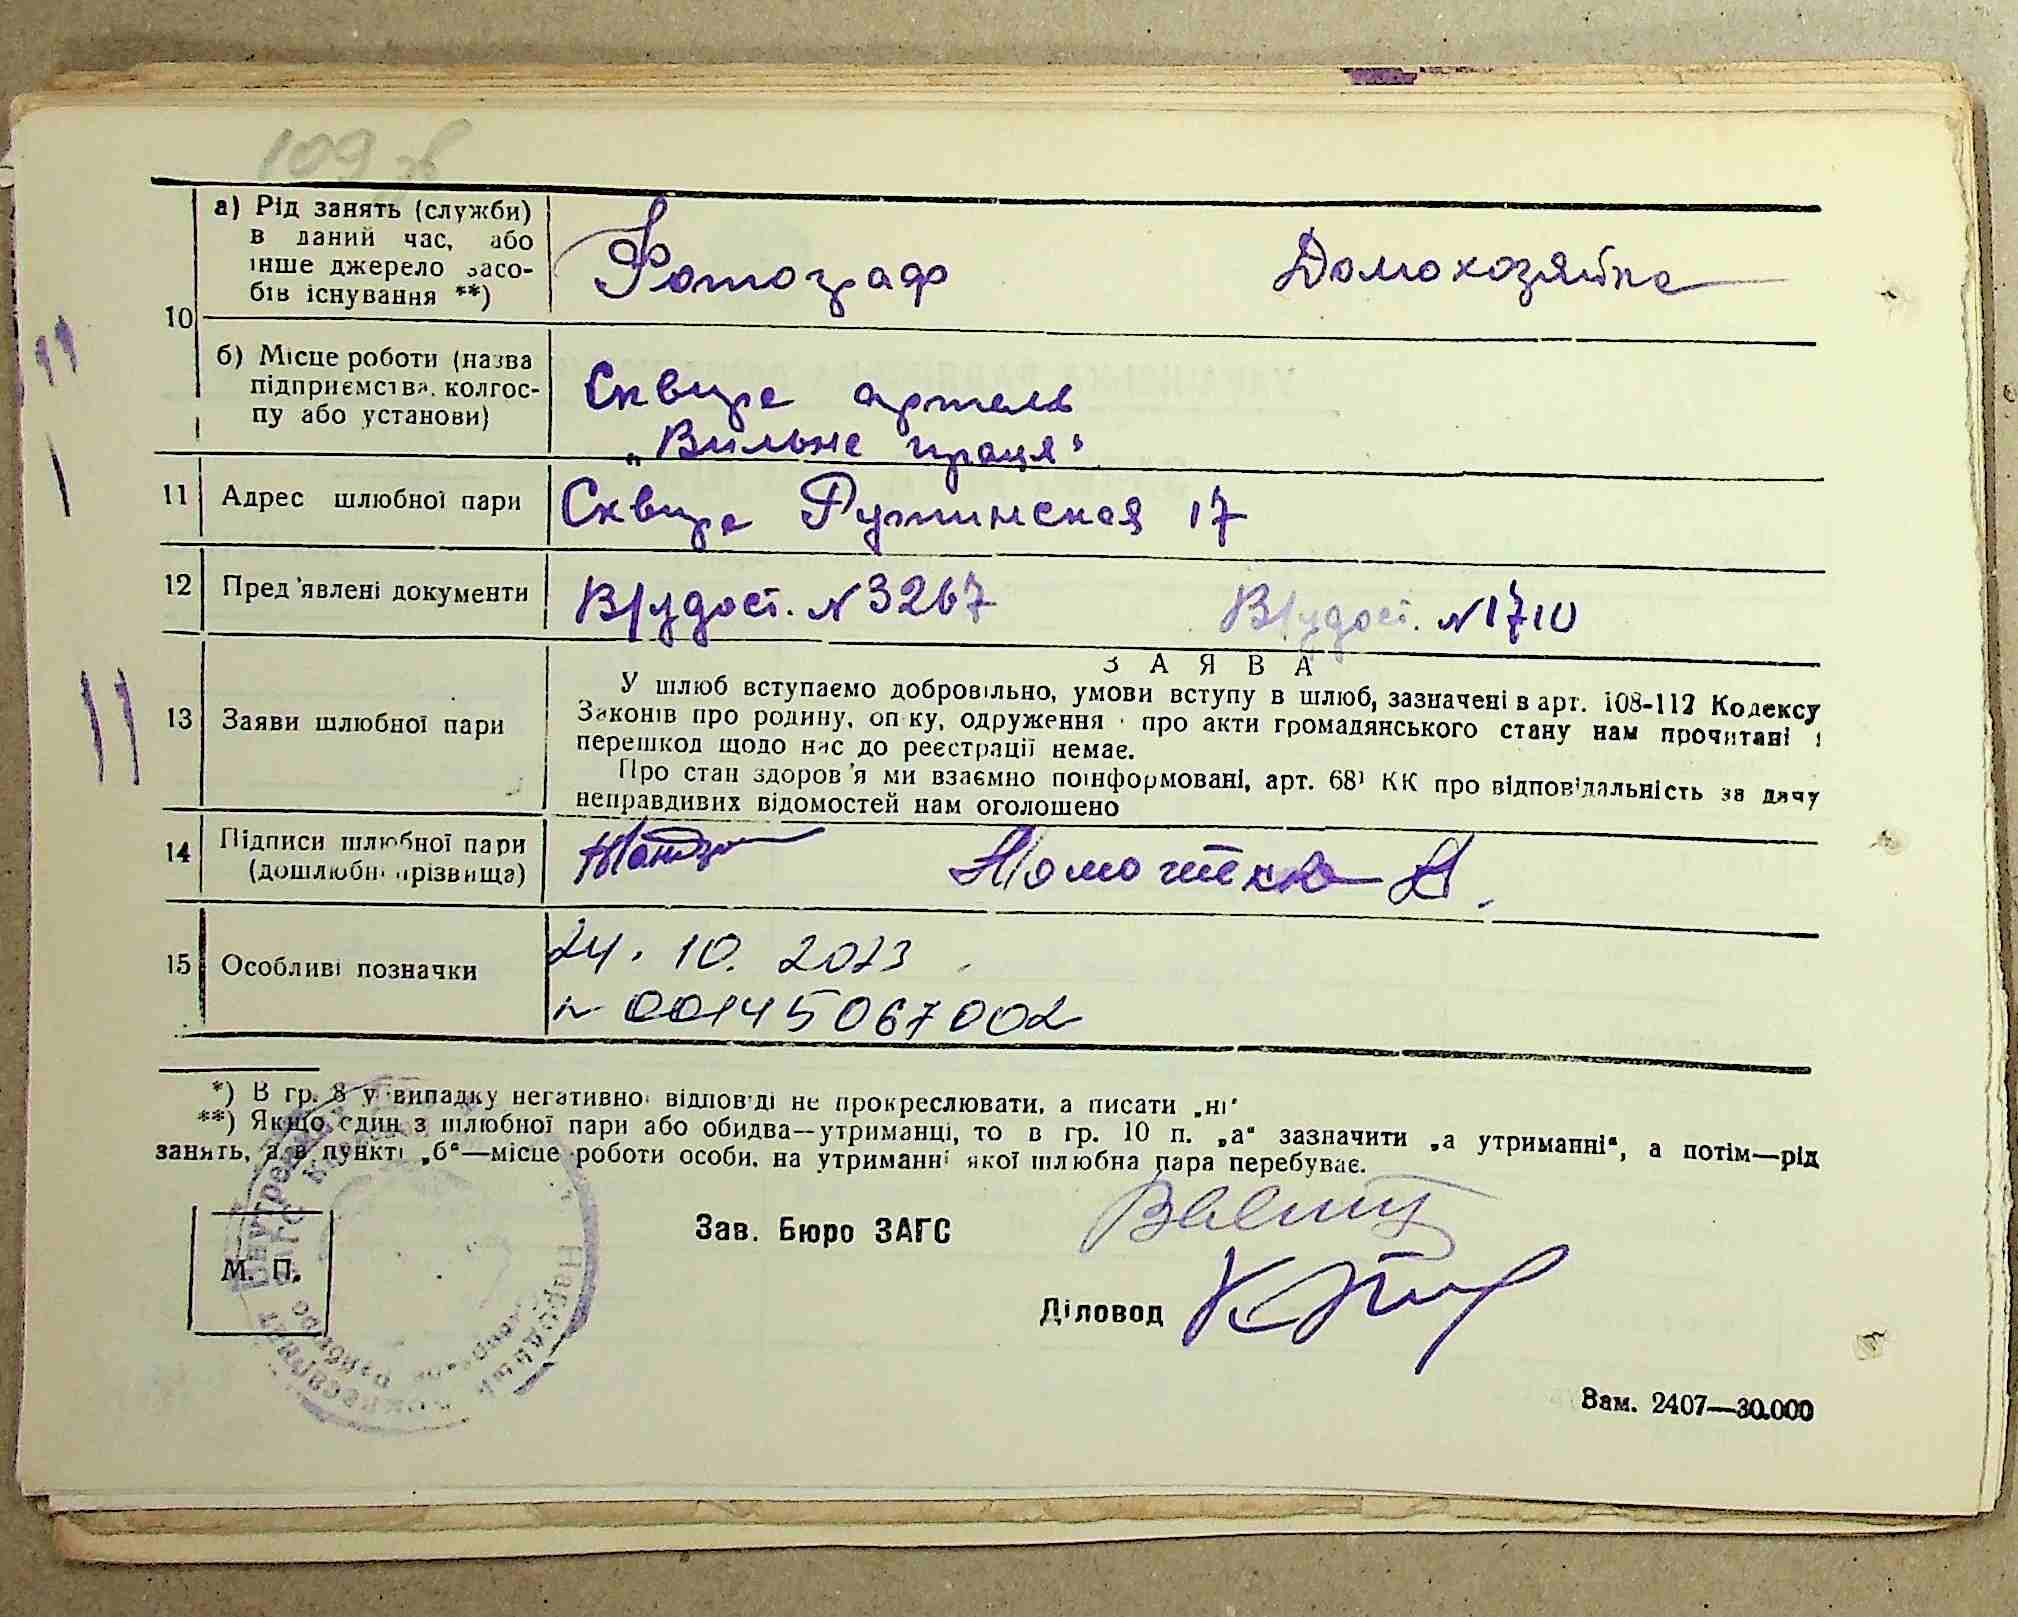 109 зв
10
а) Рід занять (служби)
в даний час, або
інше джерело засо-
бів існування **)
Фотограф Домохозяйка
б) Місце роботи (назва
підприємства, колгос-
пу або установи)
Сквира артель
„Вильна праця“
11 Адрес шлюбної пари Сквира 17
12 Пред'явлені документи В/удост. № 3267 В/удост. № 1710
13 Заяви шлюбної пари
ЗАЯВА
У шлюб вступаємо добровільно, умови вступу в шлюб, зазначені в арт. 108-112 Кодексу
Законів про родину, опіку, одруження і про акти громадянського стану нам прочитані і
перешкод щодо нас до реєстрації немає.
Про стан здоров'я ми взаємно поінформовані, арт. 68¹ КК про відповідальність за дачу
неправдивих відомостей нам оголошено
14 Підписи шлюбної пари
(дошлюбні прізвища)
15 Особливі позначки
24. 10. 2023
№ 00145067002
*) В гр. 8 у випадку негативної відповіді не прокреслювати, а писати „ні“
**) Якщо один з шлюбної пари або обидва—утриманці, то в гр. 10 п. „а“ зазначити „а утриманні“, а потім—рід
занять, а в пункті „б“—місце роботи особи, на утриманні якої шлюбна пара перебуває.
М. П.
Зав. Бюро ЗАГС
Діловод
Зам. 2407—30.000